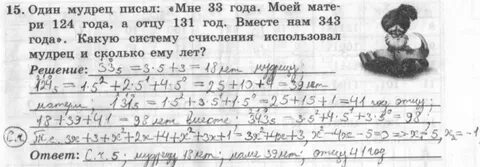 15. Один мудрец писал: «Мне 33 года. Моей мате-
ри 124 года, а отцу 131 год. Вместе нам 343
года». Какую систему счисления использовал
мудрец и сколько ему лет?
Решение: 33₅ = 3·5+3 = 18 лет мудрецу
124₅ = 1·5²+2·5¹+4·5⁰ = 25+10+4 = 39 лет
матери; 131₅ = 1·5²+3·5¹+1·5⁰ = 25+15+1 = 41 год отцу;
18+39+41 = 98 лет вместе; 343₅ = 3·5²+4·5¹+3·5⁰ = 98;
С.ч. Т.к. 3x+3+x²+2x+4+x²+3x+1 = 3x²+4x+3, x²-4x-5=0 => x=5, x₂=-1
Ответ: С.ч. 5; мудрецу 18 лет; маме 39 лет; отцу 41 год